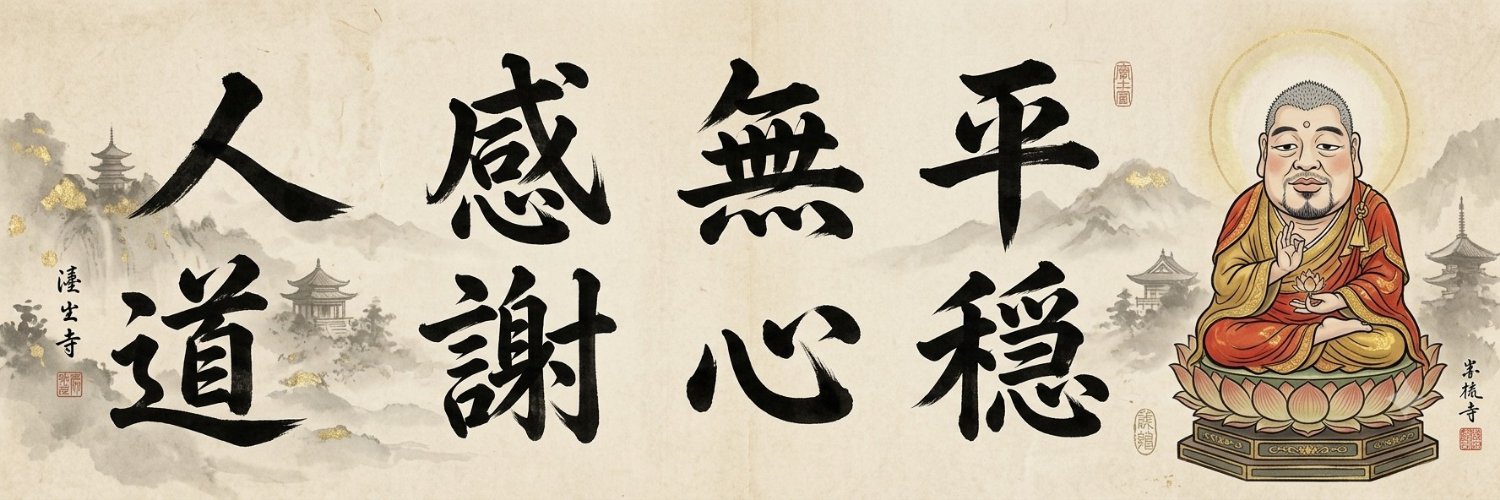 平穏
無心
感謝
人道